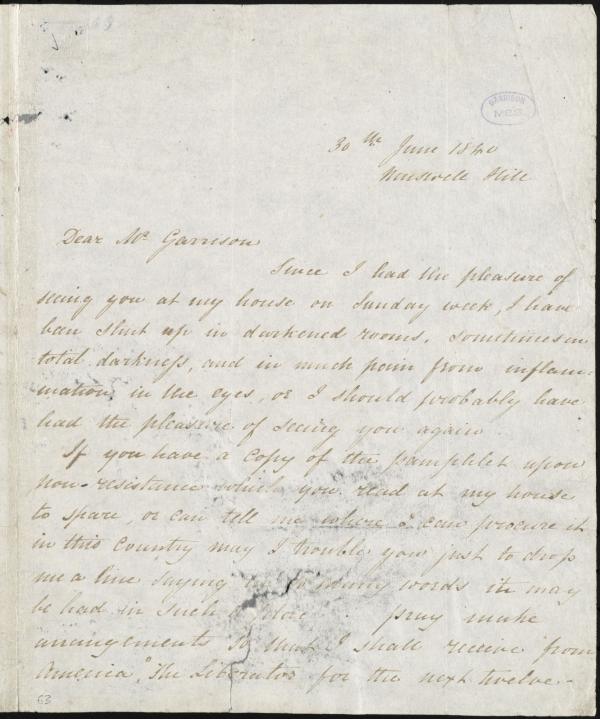 GARRISON
MSS.
30th June 1840
Muswell Hill
Dear Mr Garrison
Since I had the pleasure of
seeing you at my house on Sunday week, I have
been shut up in darkened rooms, sometimes in
total darkness, and in much pain from inflam-
mation in the eyes, or I should probably have
had the pleasure of seeing you again
If you have a copy of the pamphlet upon
non-resistance which you read at my house
to spare, or can tell me where I can procure it
in this country may I trouble you just to drop
me a line saying in so many words it may
be had in such a place. pray make
arrangements so that I shall receive from
America, "The Liberator for the next twelve-
63